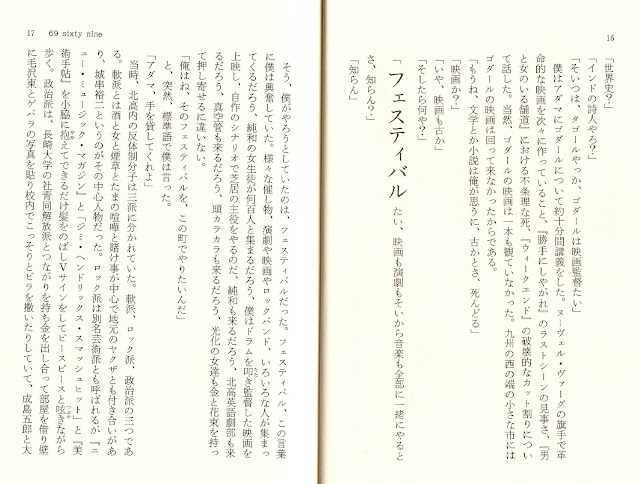 16
「世界史？」
「インドの詩人やろ？」
「そいつは、タゴールやっか、ゴダールは映画監督たい」
僕はアダマにゴダールについて約十分間講義をした。ヌーヴェル・ヴァーグの旗手で革
命的な映画を次々に作っていること、『勝手にしやがれ』のラストシーンの見事さ、『男
と女のいる舗道』における不条理な死、『ウィークエンド』の破壊的なカット割りについ
て話した。当然、ゴダールの映画は一本も観ていなかった。九州の西の端の小さな市には
ゴダールの映画は回って来なかったからである。
「もうね、文学とか小説は俺が思うに、古かとさ、死んどる」
「映画か？」
「いや、映画も古か」
「そしたら何や？」
「フェスティバルたい、映画も演劇もそいから音楽も全部に一緒にやると
さ、知らん？」
「知らん」
17 69 sixty nine
そう、僕がやろうとしていたのは、フェスティバルだった。フェスティバル、この言葉
に僕は興奮していた。様々な催し物、演劇や映画やロックバンド、いろいろな人が集まっ
てくるだろう、純和の女生徒が何百人と集まるだろう、僕はドラムを叩き監督した映画を
上映し、自作のシナリオで芝居の主役をやるのだ、純和も来るだろう、北高英語劇部も来
るだろう、真空管も来るだろう、頭カラカラも来るだろう、光化の女達も金と花束を持っ
て押し寄せるに違いない。
「俺はね、そのフェスティバルを、この町でやりたいんだ」
と、突然、標準語で僕は言った。
「アダマ、手を貸してくれよ」
当時、北高内の反体制分子は三派に分かれていた。軟派、ロック派、政治派の三つであ
る。軟派とは酒と女と煙草とたまの喧嘩と賭け事が中心で地元のヤクザとも付き合いがあ
り、城串裕二というのがその中心人物だった。ロック派は別名芸術派とも呼ばれるが『ニ
ュー・ミュージック・マガジン』と『ジミ・ヘンドリックス・スマッシュヒット』と『美
術手帖』を小脇に抱えてできるだけ髪をのばしＶサインをしてピースピースと呟きながら
歩く。政治派は、長崎大学の社青同解放派とつながりを持ち金を出し合って部屋を借り壁
に毛沢東とゲバラの写真を貼り校内でこっそりとビラを撒いたりしていて、成島五郎と大